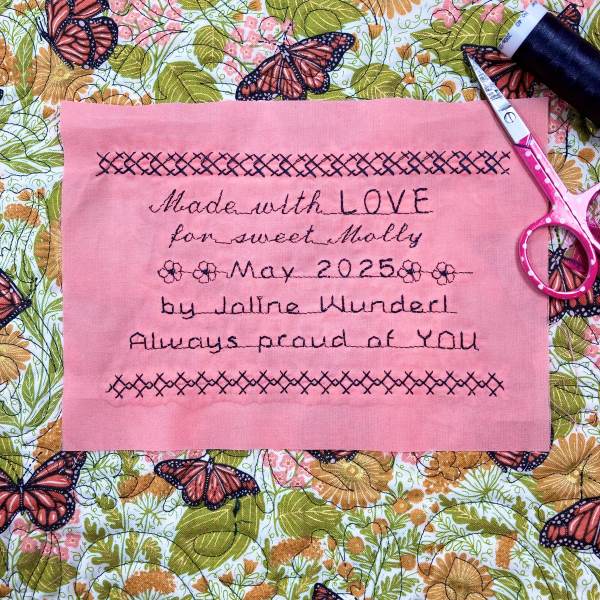 Made with LOVE
for sweet Molly
May 2025
by Joline Wunderl
Always proud of YOU